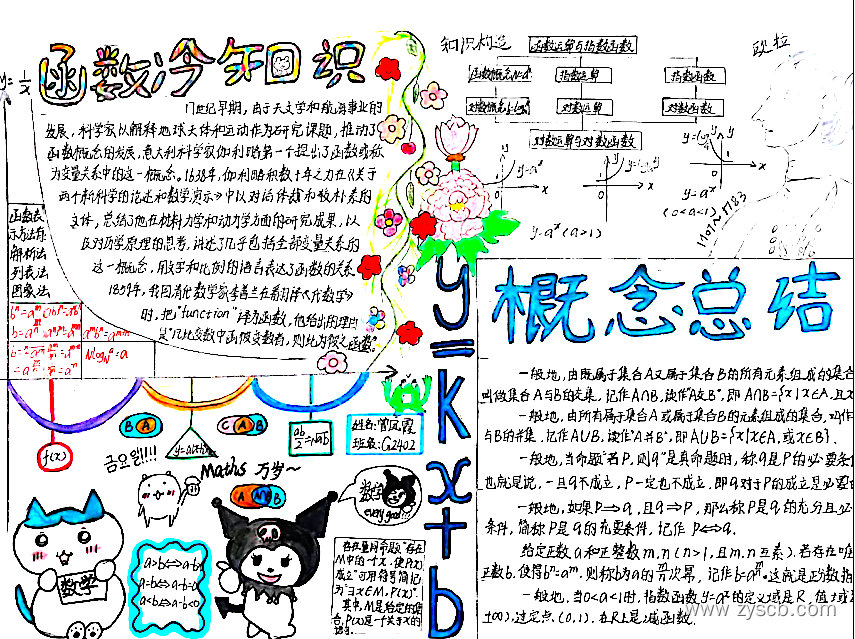 函数冷知识
y=1/x
17世纪早期，由于天文学和航海事业的
发展，科学家以解释地球天体和运动作为研究课题，推动了
函数概念的发展，意大利科学家伽利略第一个提出了函数或称
为变量关系中的这一概念。1638年，伽利略积数十年之力在《关于
两个新科学的论述和数学演示》中以对话体裁和较朴素的
文体，总结了他在材料力学和动力学方面的研究成果，以
及对力学原理的思考，讲述了几乎包括全部变量关系的
这一概念，用文字和比例的语言表达了函数的关系
1859年，我国清代数学家李善兰在翻译《代数学》
时，把"function"译为函数，他给出的理由
是"凡此变数中函彼变数者，则此为彼之函数"。
函数表
示方法有
解析法
列表法
图象法
知识构造
函数运算与指数函数
指数运算
指数函数
对数运算
对数函数
对数运算与对数函数
y=aˣ
y=aˣ(a>1)
y=aˣ
(0<a<1)
欧拉
1707~1783
y=kx+b
概念总结
一般地，由既属于集合A又属于集合B的所有元素组成的集合
叫做集合A与B的交集，记作A∩B，读作"A交B"，即A∩B={x|x∈A，且x
一般地，由所有属于集合A或属于集合B的元素组成的集合，叫作
与B的并集，记作A∪B，读作"A并B"，即A∪B={x|x∈A，或x∈B}.
一般地，当命题"若P，则q"是真命题时，称q是P的必要条件
也就是说，一旦q不成立，P一定也不成立，即q对于P的成立是必要的
一般地，如果P⇒q，且q⇒P，那么称P是q的充分且必
条件，简称P是q的充要条件，记作P⇔q.
给定正数a和正整数m，n（n>1，且m，n互素）.若存在唯
正数b，使得bⁿ=aᵐ，则称b为a的m/n次幂，记作b=a^(m/n).这就是分数指
一般地，当0<a<1时，指数函数y=aˣ的定义域是R，值
+∞)，过定点(0,1)，在R上是减函数.
f(x)
A
B
C
A
B
姓名:
班级:G2402
금요일!!!
Maths 万岁~
A
A∩B
B
数学
every good!
数学
a>b⇔a-b>0
a=b⇔a-b=0
a<b⇔a-b<0
存在量词命题"存在
M中的一个x，使P(x)
成立"可用符号简记
为"∃x∈M，P(x)".
其中，M是给定的集
合，P(x)是一个关于x的
www.zyscb.com